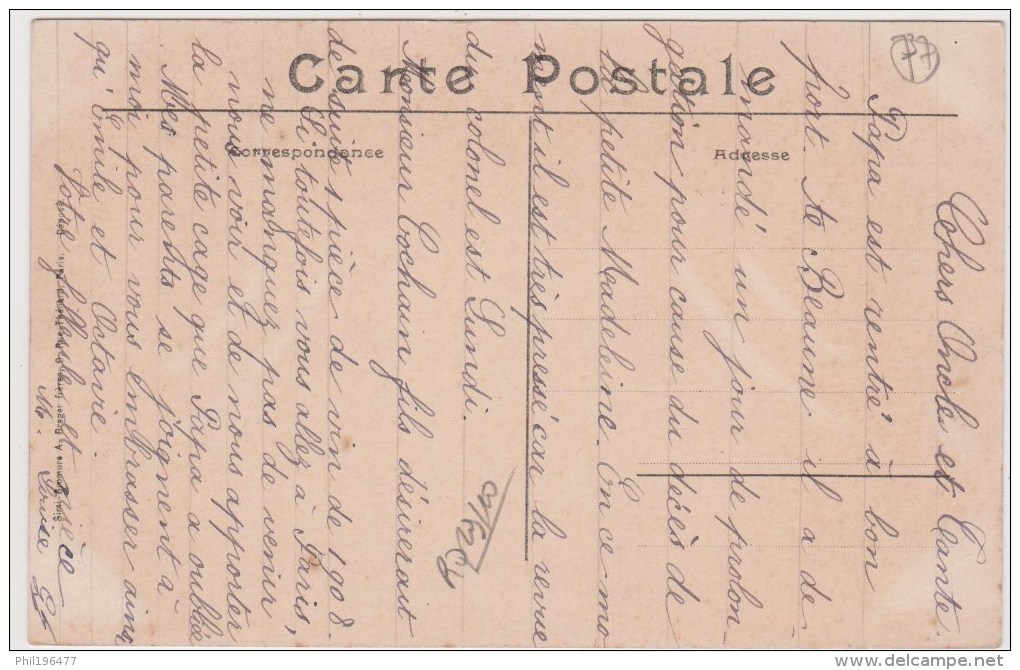 Carte Postale
Correspondance
Adresse
77
Chers Oncle et Tante.
Papa est rentré à bon
port. de Beaune il a de-
mandé un jour de prolon-
gation pour cause du décès de
la petite Madeleine. En ce mo-
ment il est très pressé car la revue
du colonel est Lundi.
Monsieur Cochain fils désirerait
de suite 1 pièce de vin de 1908.
Si toutefois vous allez à Paris,
ne manquez pas de venir
nous voir et de nous apporter
la petite cage que Papa a oubliée
Mes parents se joignent à
moi pour vous embrasser ainsi
qu'Emile et Octavie.
Votre filleule et nièce
M. Louise
Phil196477
delcampe.net